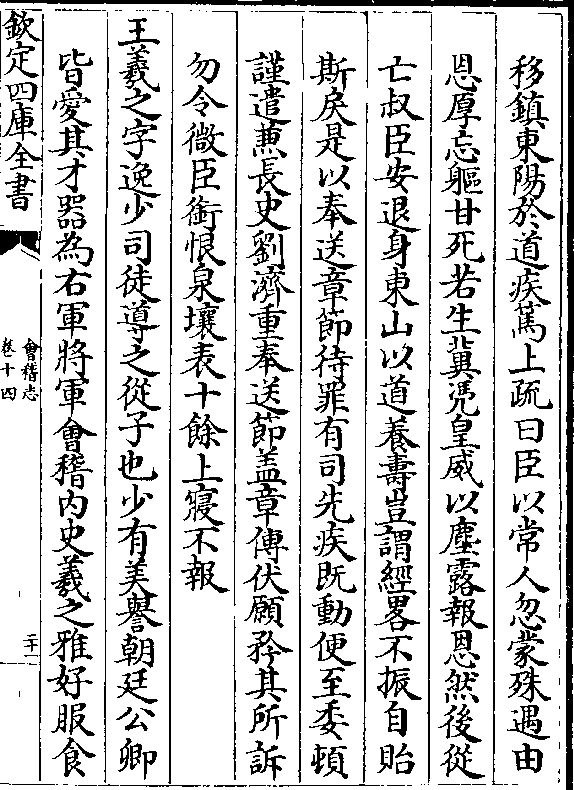 移鎮東陽於道疾篤上疏曰臣以常人忽蒙殊遇由
恩厚忘軀甘死若生冀憑皇威以塵露報恩然後從
亡叔臣安退身東山以道養壽豈謂經畧不振自貽
斯戾是以奉送章節待罪有司先疾既動便至委頓
謹遣兼長史劉濟重奉送節盖章傳伏願矜其所訴
勿令微臣銜恨泉壤表十餘上寢不報
王羲之字逸少司徒導之從子也少有美譽朝廷公卿
皆愛其才器為右軍將軍會稽内史羲之雅好服食
欽定四庫全書
會稽志
卷十四
二十